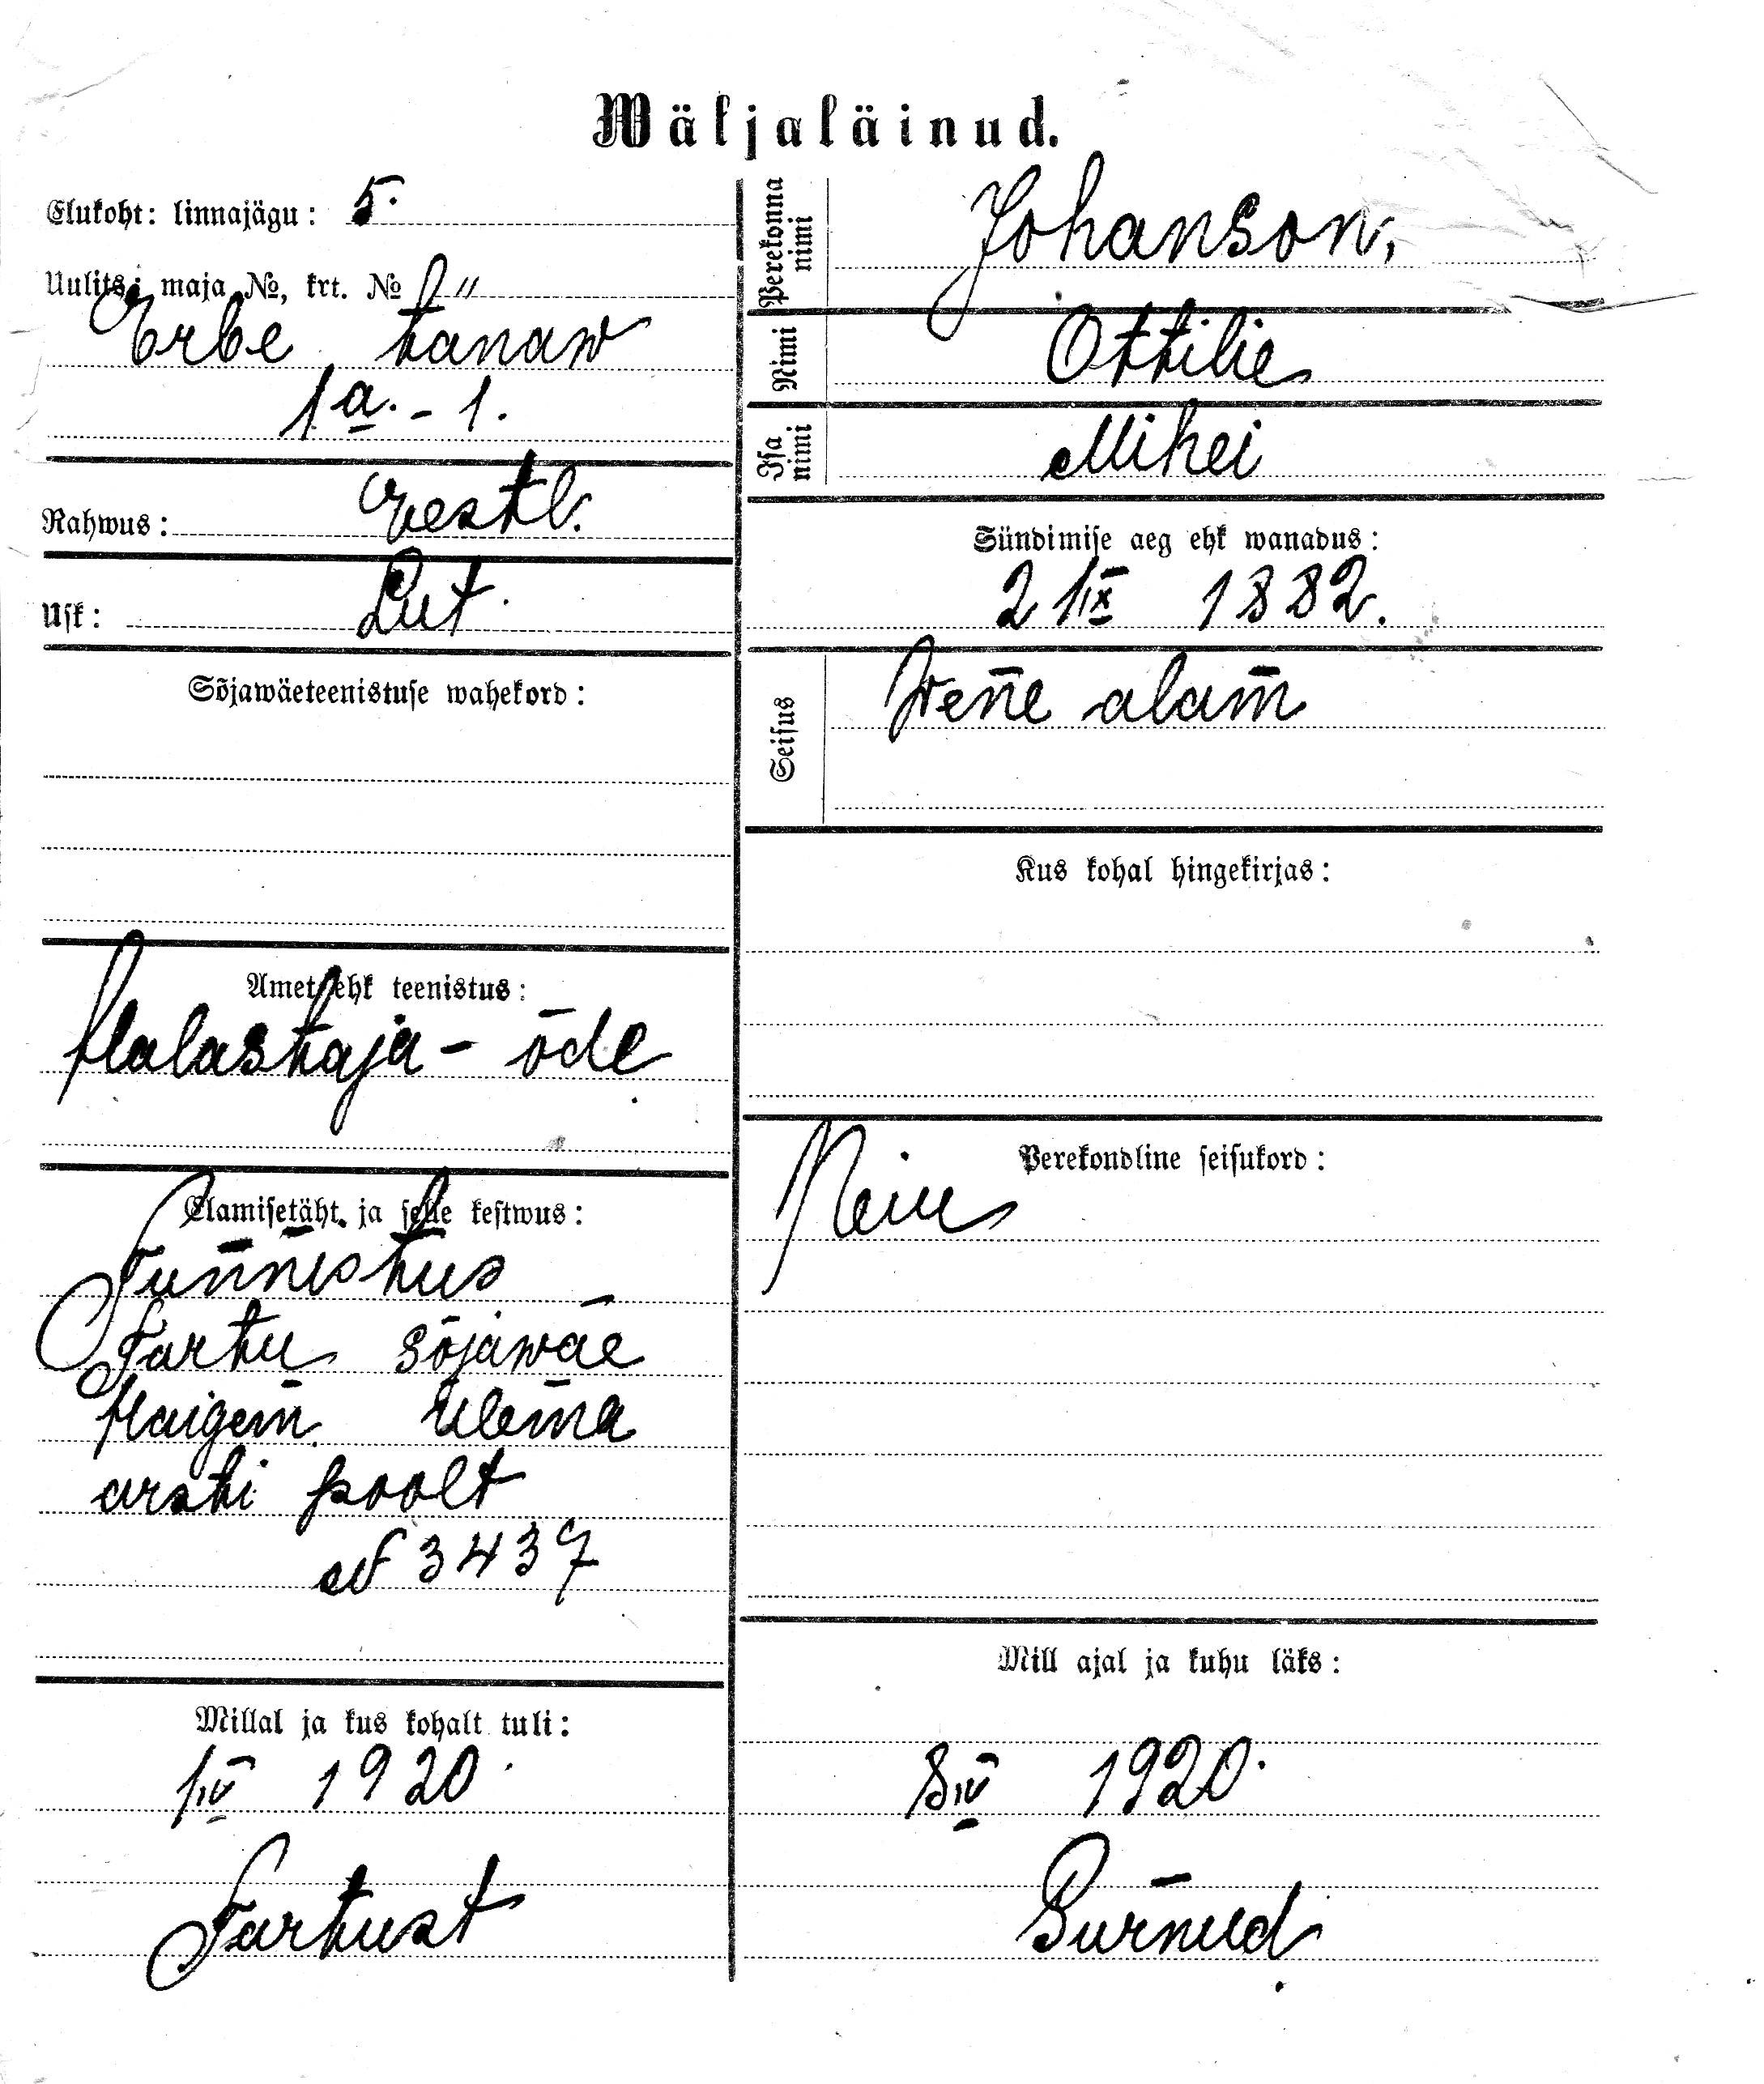 Wäljaläinud.
Elukoht: linnajägu: 5.
Uulits, maja №, krt. №
Erbe tänaw
1 a. - 1.
Rahwus: Eestl.
Usk: Lut.
Sõjawäeteenistuse wahekord:
Amet ehk teenistus:
Halastaja-õde
Elamisetäht ja selle kestwus:
Tunn̄istus
Tartu sõjawäe
Haigem̄. ülem̄a
arsti poolt
№ 3437
Millal ja kus kohalt tuli:
1 IV 1920.
Tartust
Perekonna nimi
Johanson,
Nimi
Ottilie
Isa nimi
Mihei
Sündimise aeg ehk wanadus:
21 IX 1882.
Seisus
Wen̄e alam̄
Kus kohal hingekirjas:
Perekondline seisukord:
Neiu
Mill ajal ja kuhu läks:
8 IV 1920.
Surn̄ud